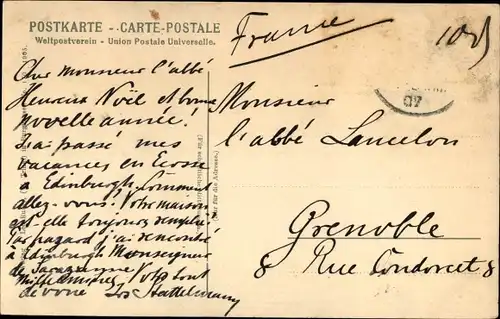 POSTKARTE - CARTE-POSTALE
Weltpostverein - Union Postale Universelle.
France
Cher monsieur l'abbé
Heureux Noël et bonne
novelle année!
J'ai passé mes
vacances en Ecosse
à Edinburgh. Comment
allez-vous. Votre maison
est-elle toujours
Par hazard j'ai rencontré
à Edinburgh Monseigneur
de
Votre tout
(Nur für die Adresse.)
Monsieur
l'abbé Lancelon
Grenoble
8 Rue Condorcet 8
07